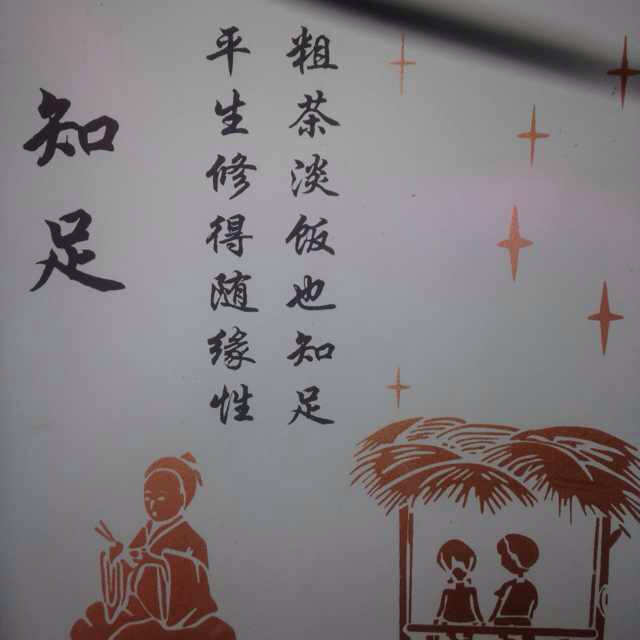 粗茶淡饭也知足
平生修得随缘性
知足